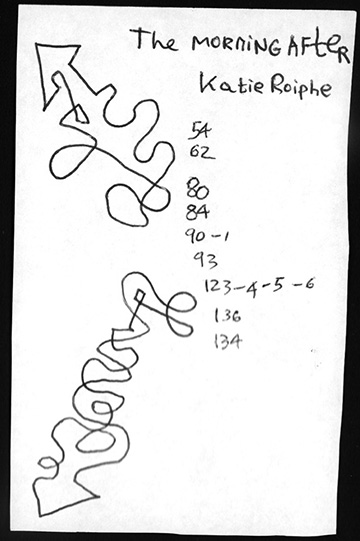 The MORNING AFteR
Katie Roiphe
54
62
80
84
90-1
93
123-4-5-6
136
134